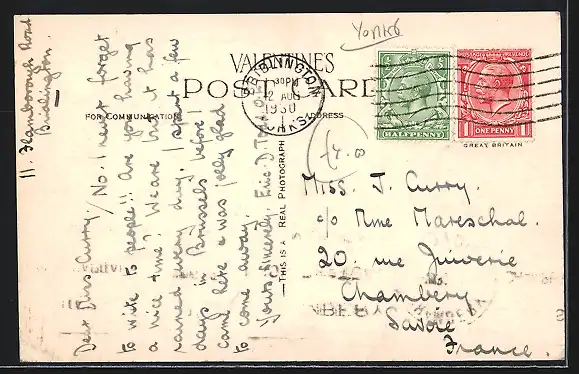 11. Flamborough Road
Bridlington.
Dear Miss Curry / No. I never forget
to write to people!! Are you having
a nice time? We are but it has
rained every day. I spent a few
days in Brussels before I
came here & was jolly glad
to come away.
Yours Sincerely, Eric D.
Yorks
VALENTINE'S
POST CARD
FOR COMMUNICATION
ADDRESS
BRIDLINGTON
30PM
12 AUG
1930
YORKS
HALFPENNY
POSTAGE REVENUE
1 ONE PENNY 1
GREAT BRITAIN
THIS IS A REAL PHOTOGRAPH
£4.0
Miss. J. Curry.
c/o Mme Mareschal.
20. rue Juiverie
Chambery
Savoie
France.